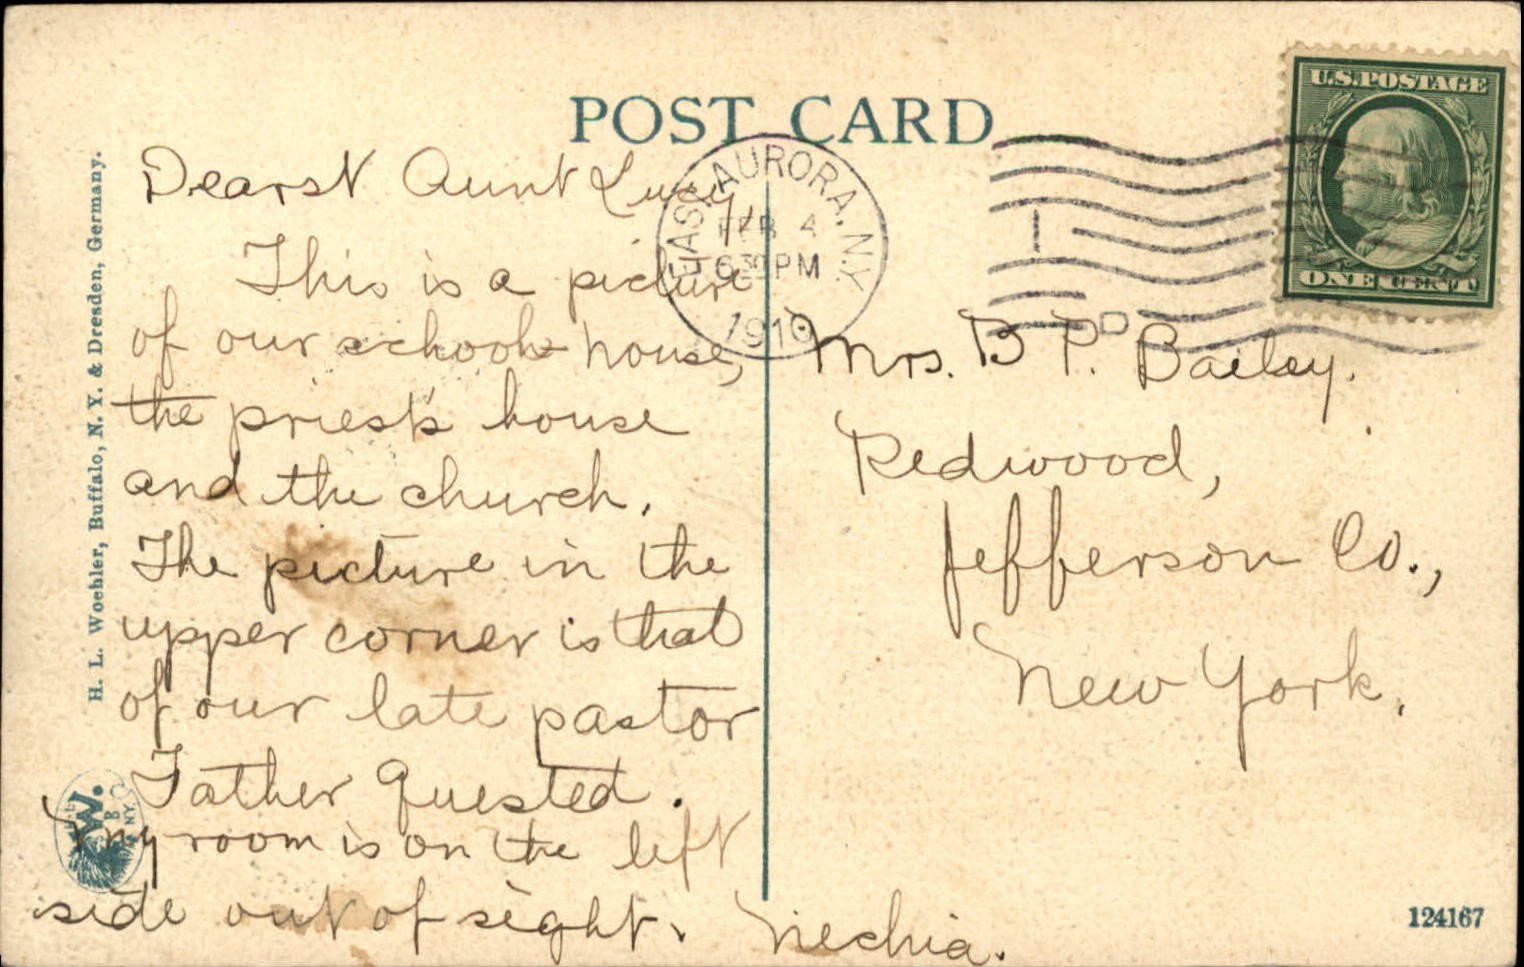 POST CARD
U.S. POSTAGE
ONE CENT
EAST AURORA, N.Y.
FEB 4
6 30 PM
1910
H. L. Woehler, Buffalo, N. Y. & Dresden, Germany.
Dearst Aunt Lucy,
This is a picture
of our school house,
the priest's house
and the church.
The picture in the
upper corner is that
of our late pastor
Father Quested.
My room is on the left
side out of sight. Nechia.
Mrs. B P. Bailey.
Redwood,
Jefferson Co.,
New York.
W.
B
N.Y.
124167